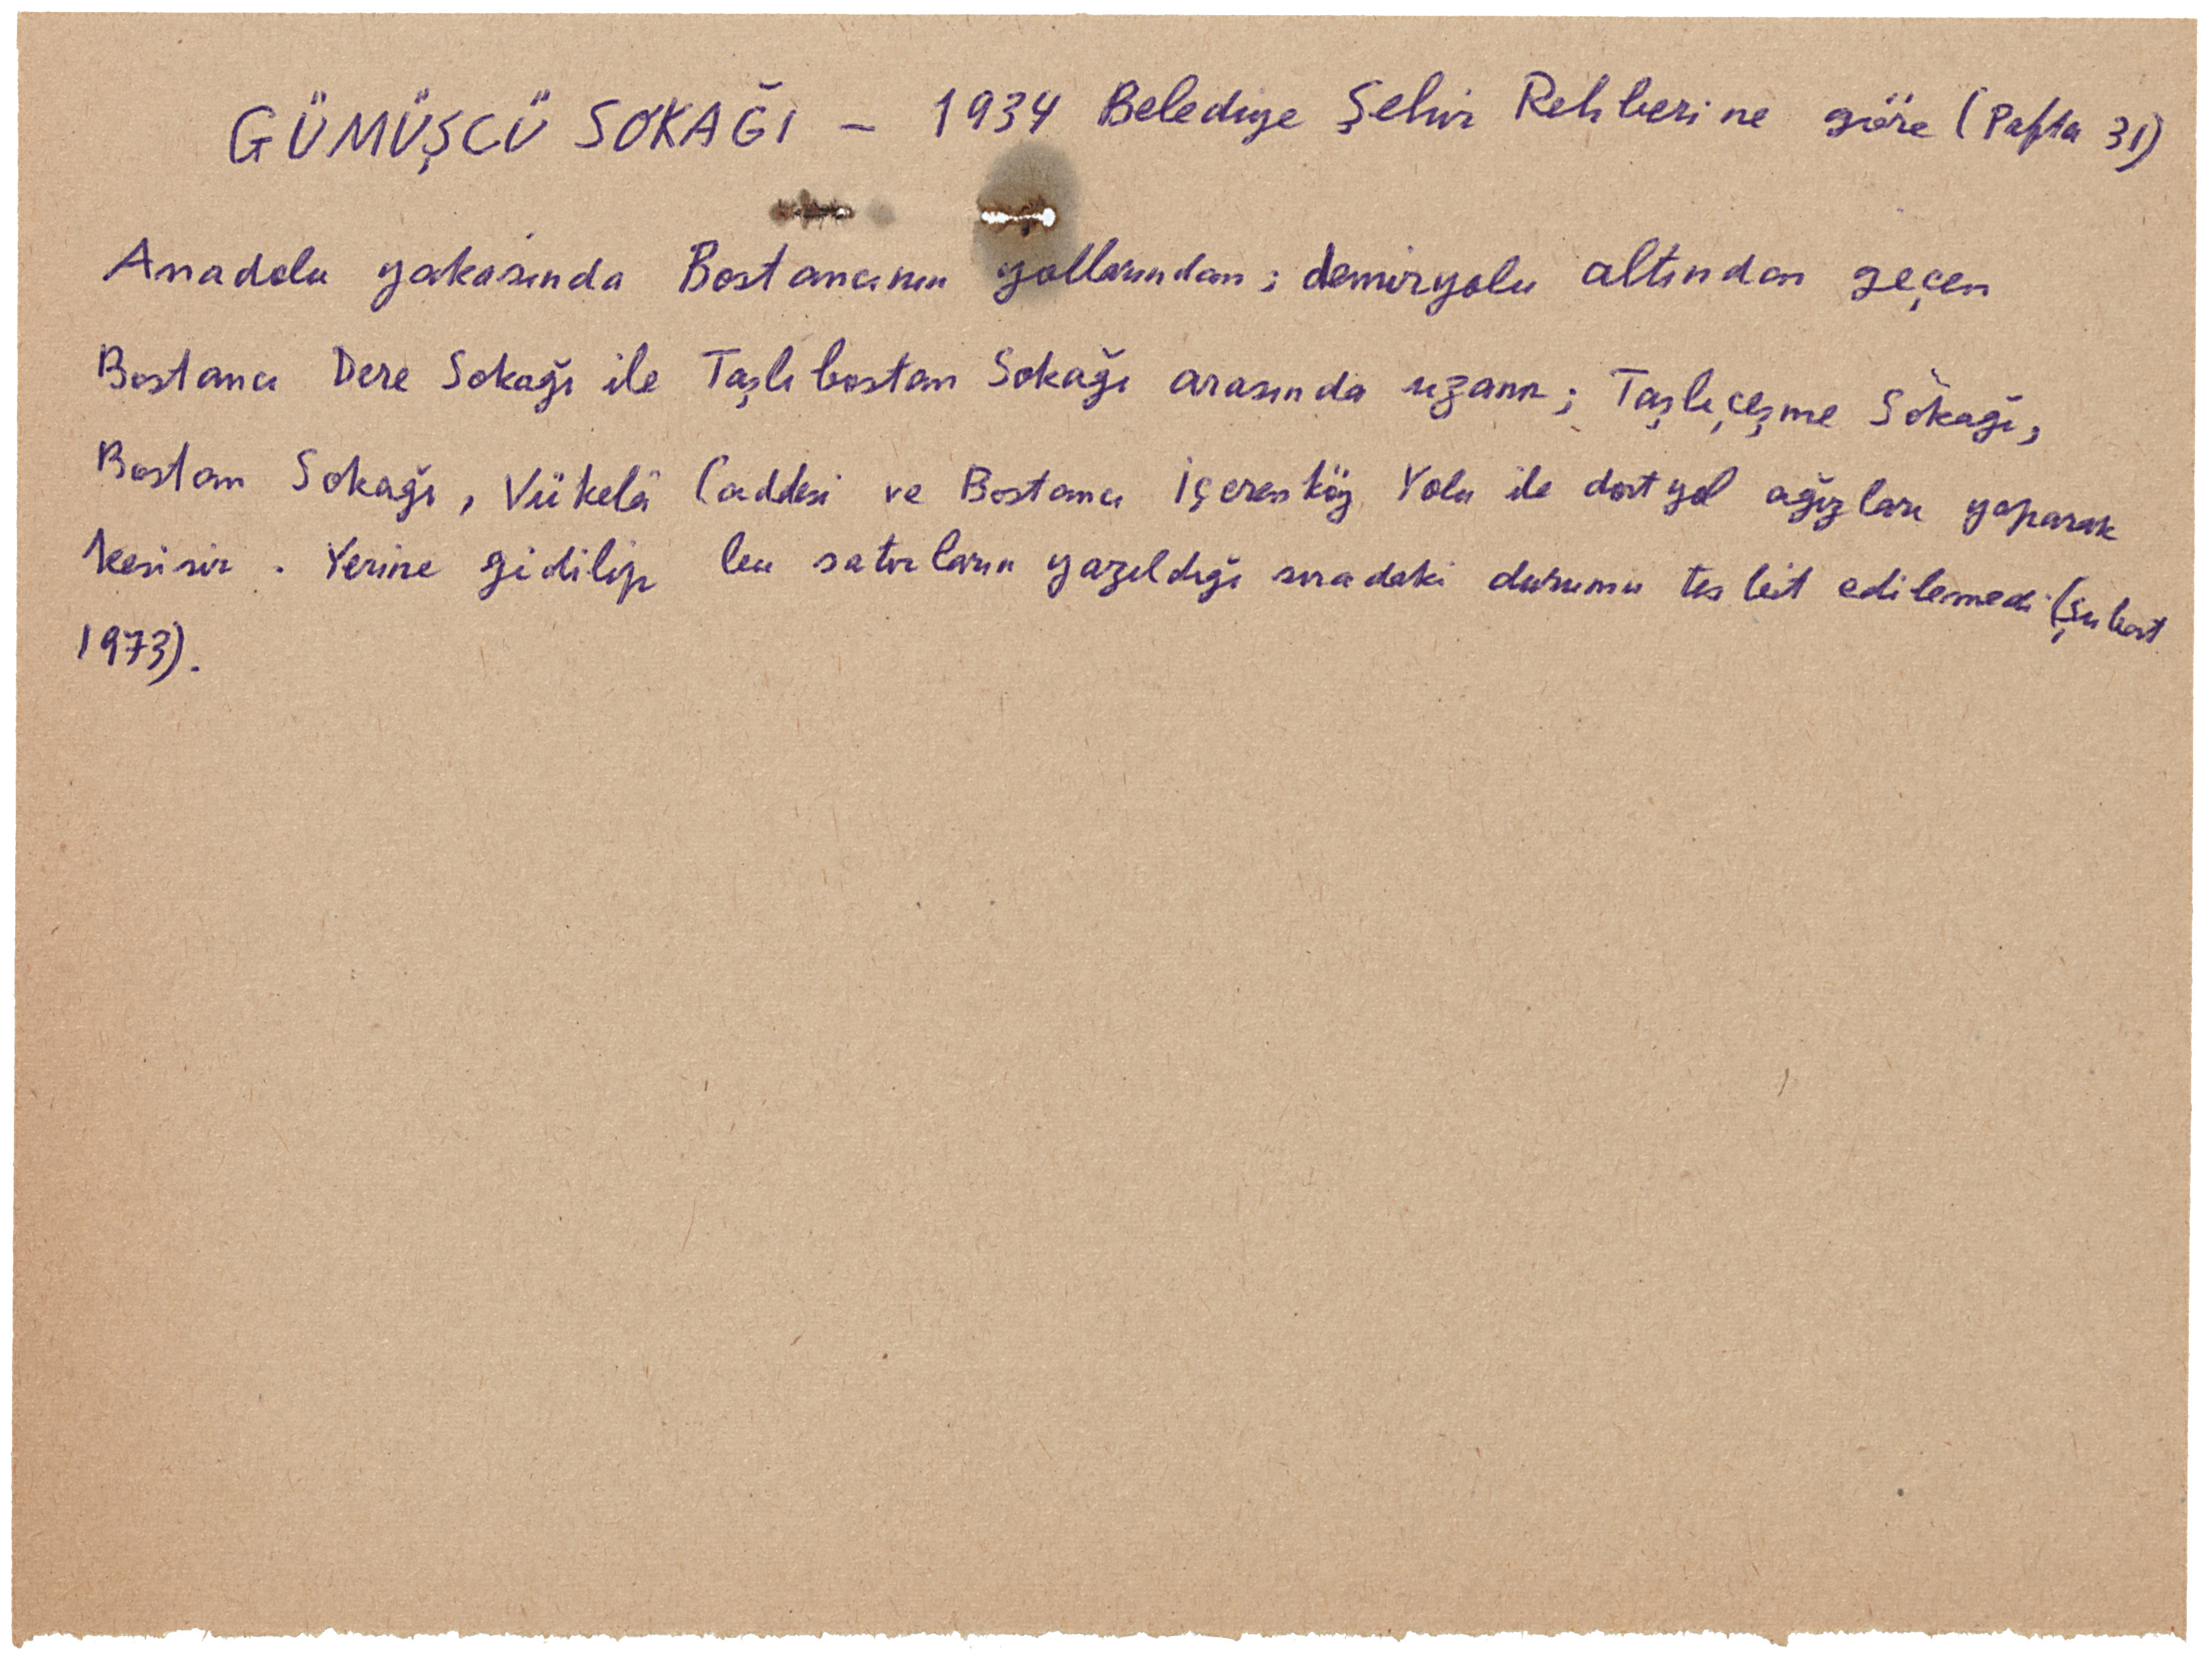 GÜMÜŞCÜ SOKAĞI – 1934 Belediye Şehir Rehberine göre (Pafta 31)
Anadolu yakasında Bostancının yollarından; demiryolu altından geçen
Bostancı Dere Sokağı ile Taşlıbostan Sokağı arasında uzanır; Taşlıçeşme Sokağı,
Bostan Sokağı, Vükelâ Caddesi ve Bostancı İçerenköy Yolu ile dörtyol ağızları yaparak
kesişir. Yerine gidilip bu satırların yazıldığı sıradaki durumu tesbit edilemedi (Şubat
1973).